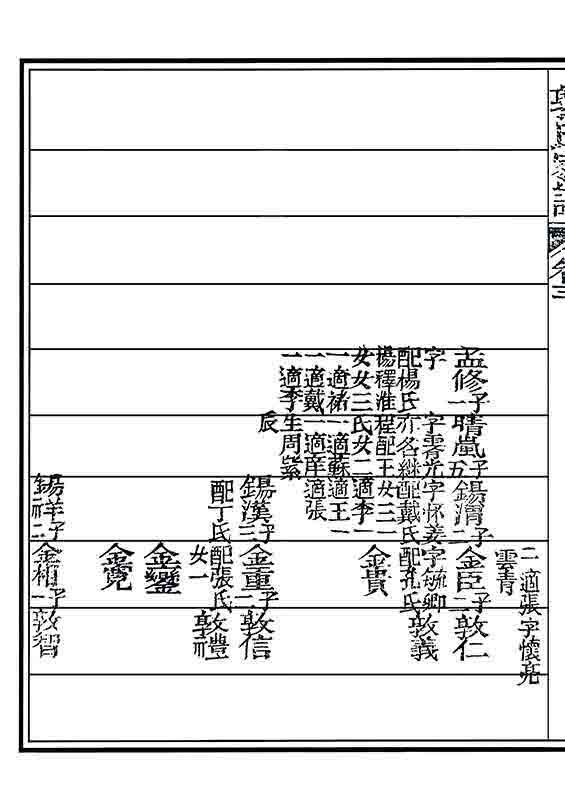 卷三
二適張字懷亮
雲青
孟修子一晴嵐子五錫渭子二金臣子二敦仁
字 字霽光字怀姜字毓卿敦義
配楊氏亦名継配戴氏配孔氏
楊釋淮程配王女三一
女女三氏女二適李一
一適祐一適蘇適王一
一適戴一適産適張
一適李生周紫
辰
金貴
錫漢子三金重子二敦信
配丁氏配張氏敦禮
女一 敦
金鑾
金寛
錫祥子二金相子一敦智